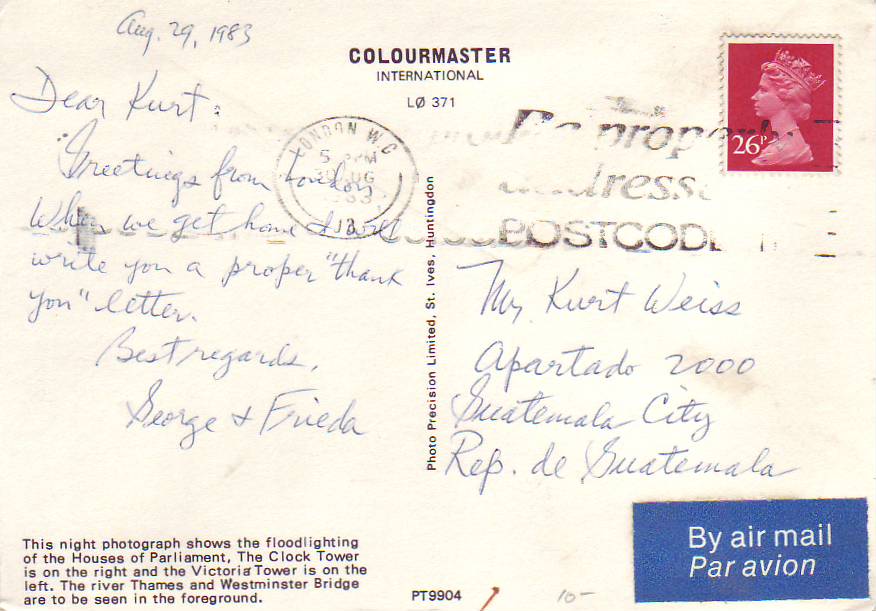 Aug. 29, 1983
COLOURMASTER
INTERNATIONAL
LØ 371
Dear Kurt:
Greetings from London
When we get home I will
write you a proper "thank
you" letter.
Best regards,
George & Frieda
LONDON W C
5 PM
30 AUG
1983
13
Be properly
addressed
POSTCODE
26P
Photo Precision Limited, St. Ives, Huntingdon
Mr Kurt Weiss
Apartado 2000
Guatemala City
Rep. de Guatemala
By air mail
Par avion
This night photograph shows the floodlighting
of the Houses of Parliament, The Clock Tower
is on the right and the Victoria Tower is on the
left. The river Thames and Westminster Bridge
are to be seen in the foreground.
PT9904
10-